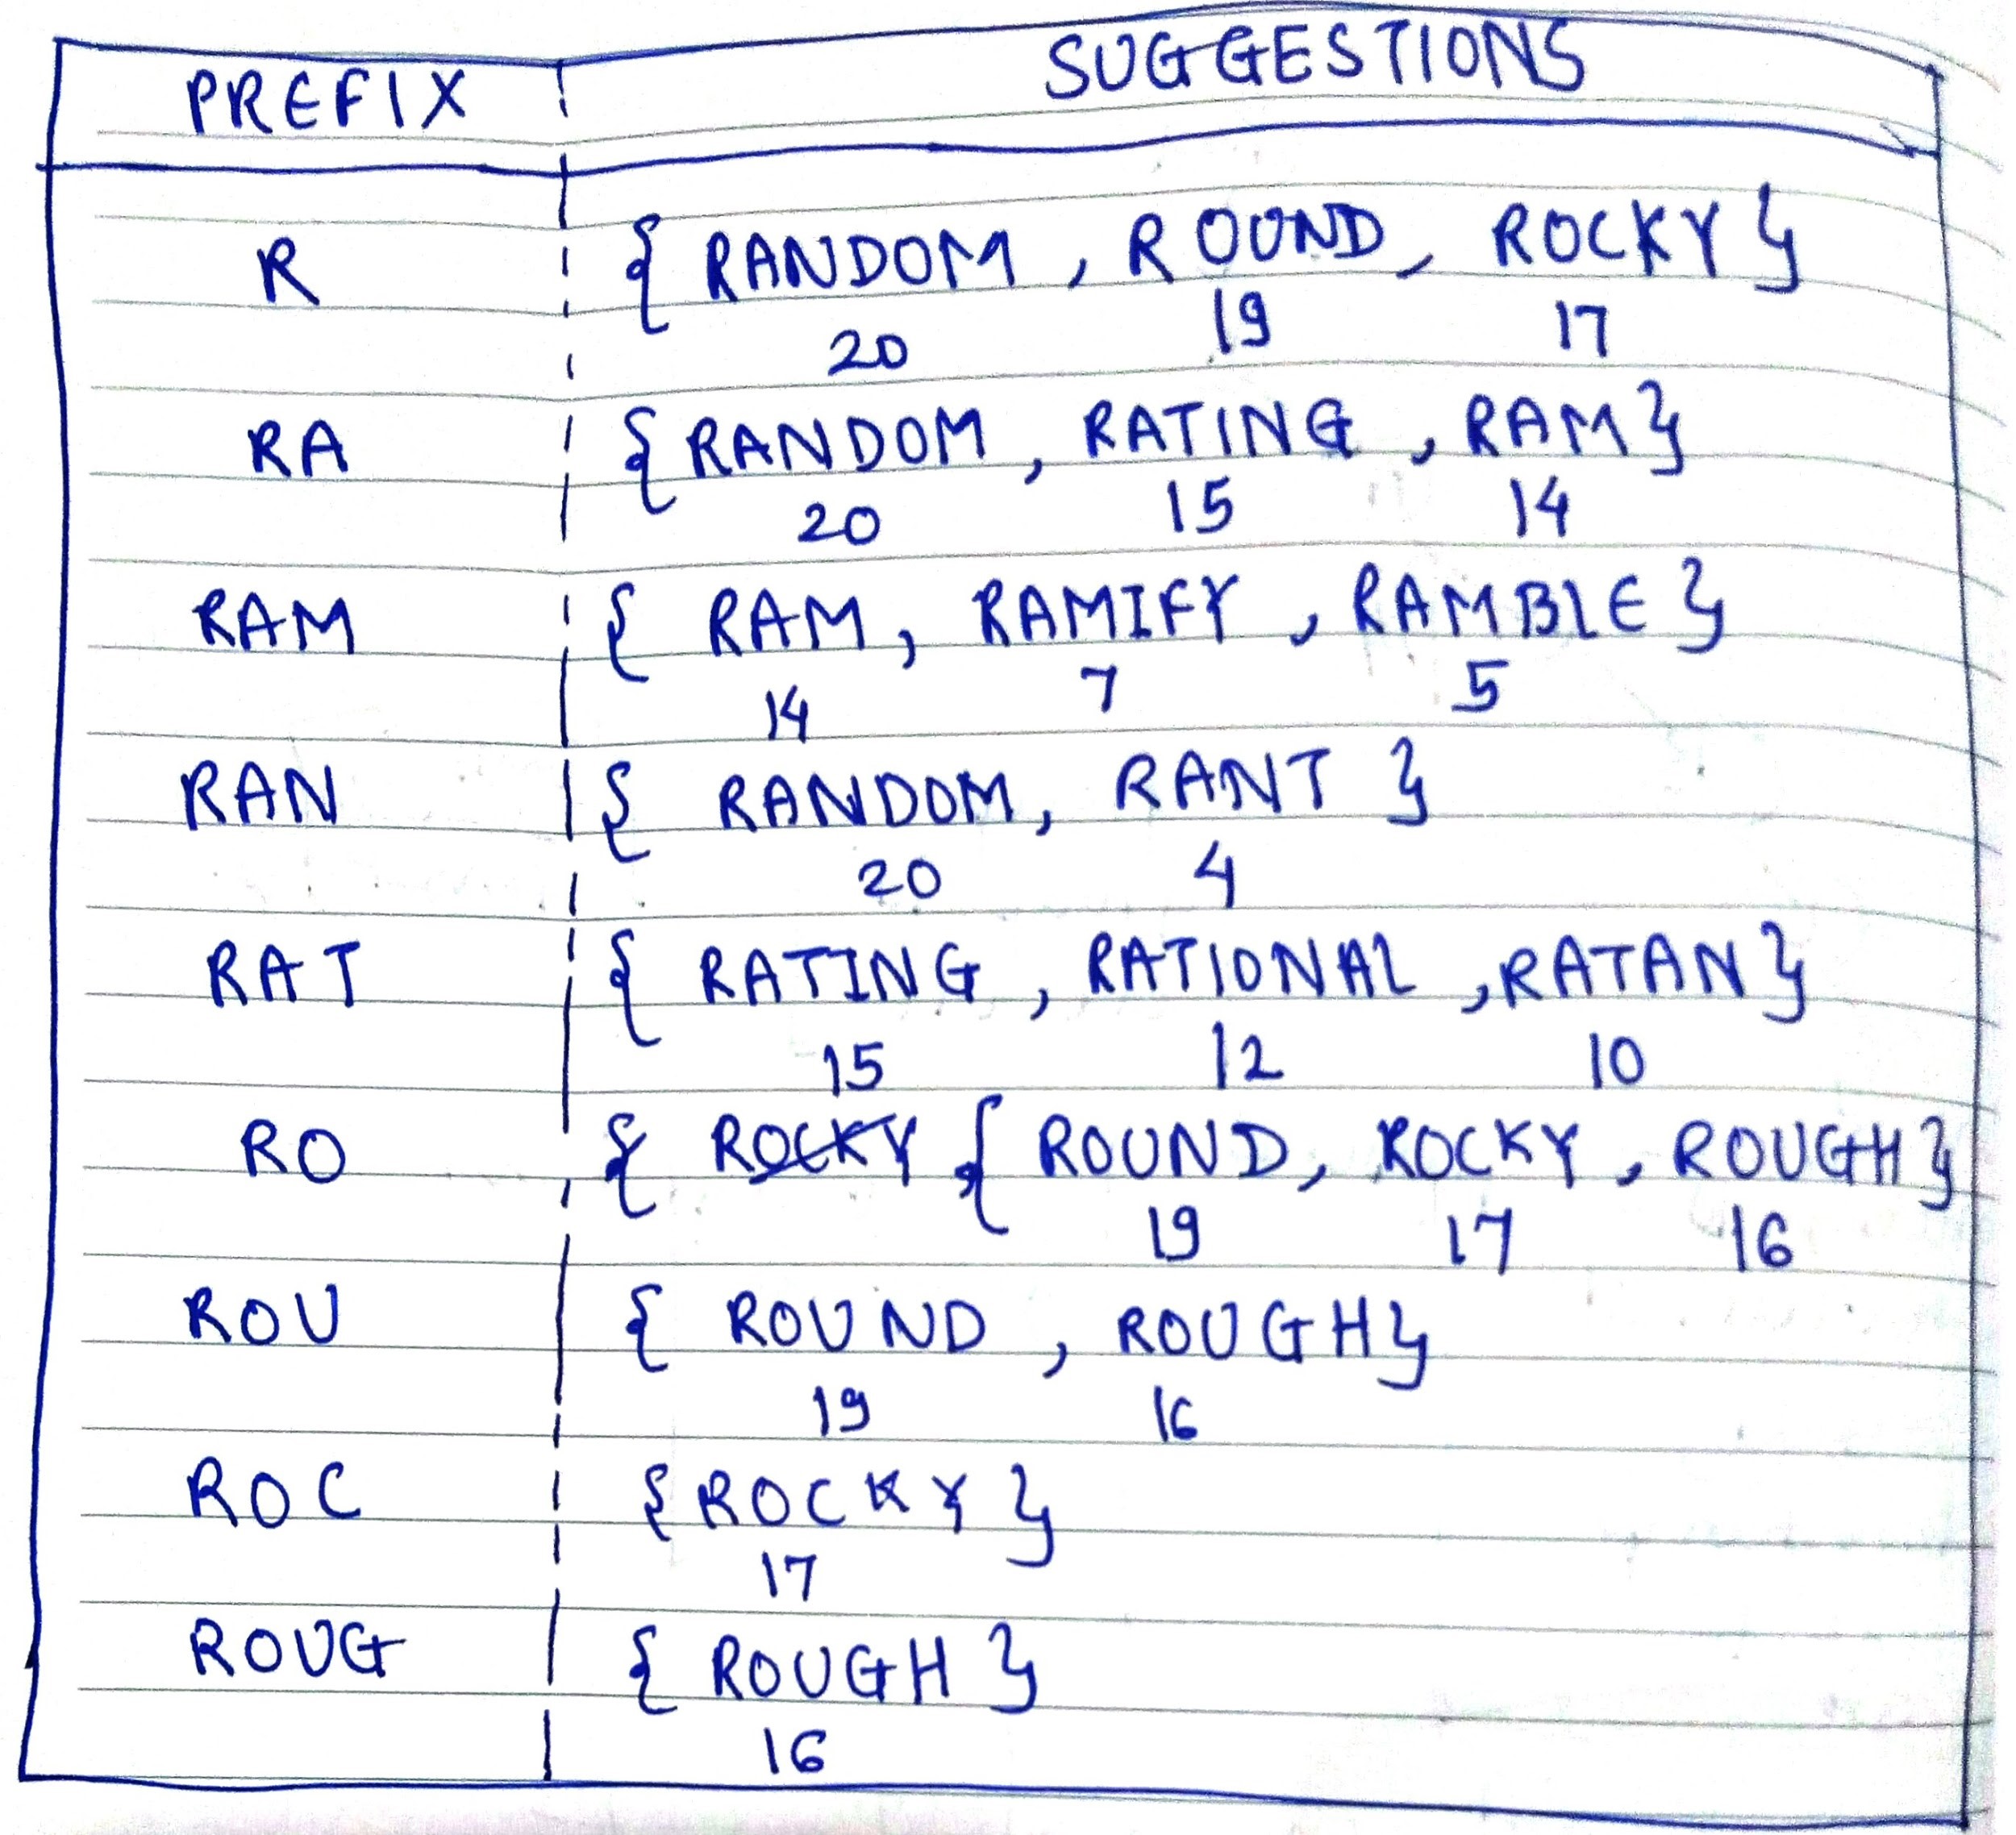 PREFIX SUGGESTIONS
R { RANDOM, ROUND, ROCKY }
20 19 17
RA { RANDOM, RATING, RAM }
20 15 14
RAM { RAM, RAMIFY, RAMBLE }
14 7 5
RAN { RANDOM, RANT }
20 4
RAT { RATING, RATIONAL, RATAN }
15 12 10
RO { ROCKY { ROUND, ROCKY, ROUGH }
19 17 16
ROU { ROUND, ROUGH }
19 16
ROC { ROCKY }
17
ROUG { ROUGH }
16